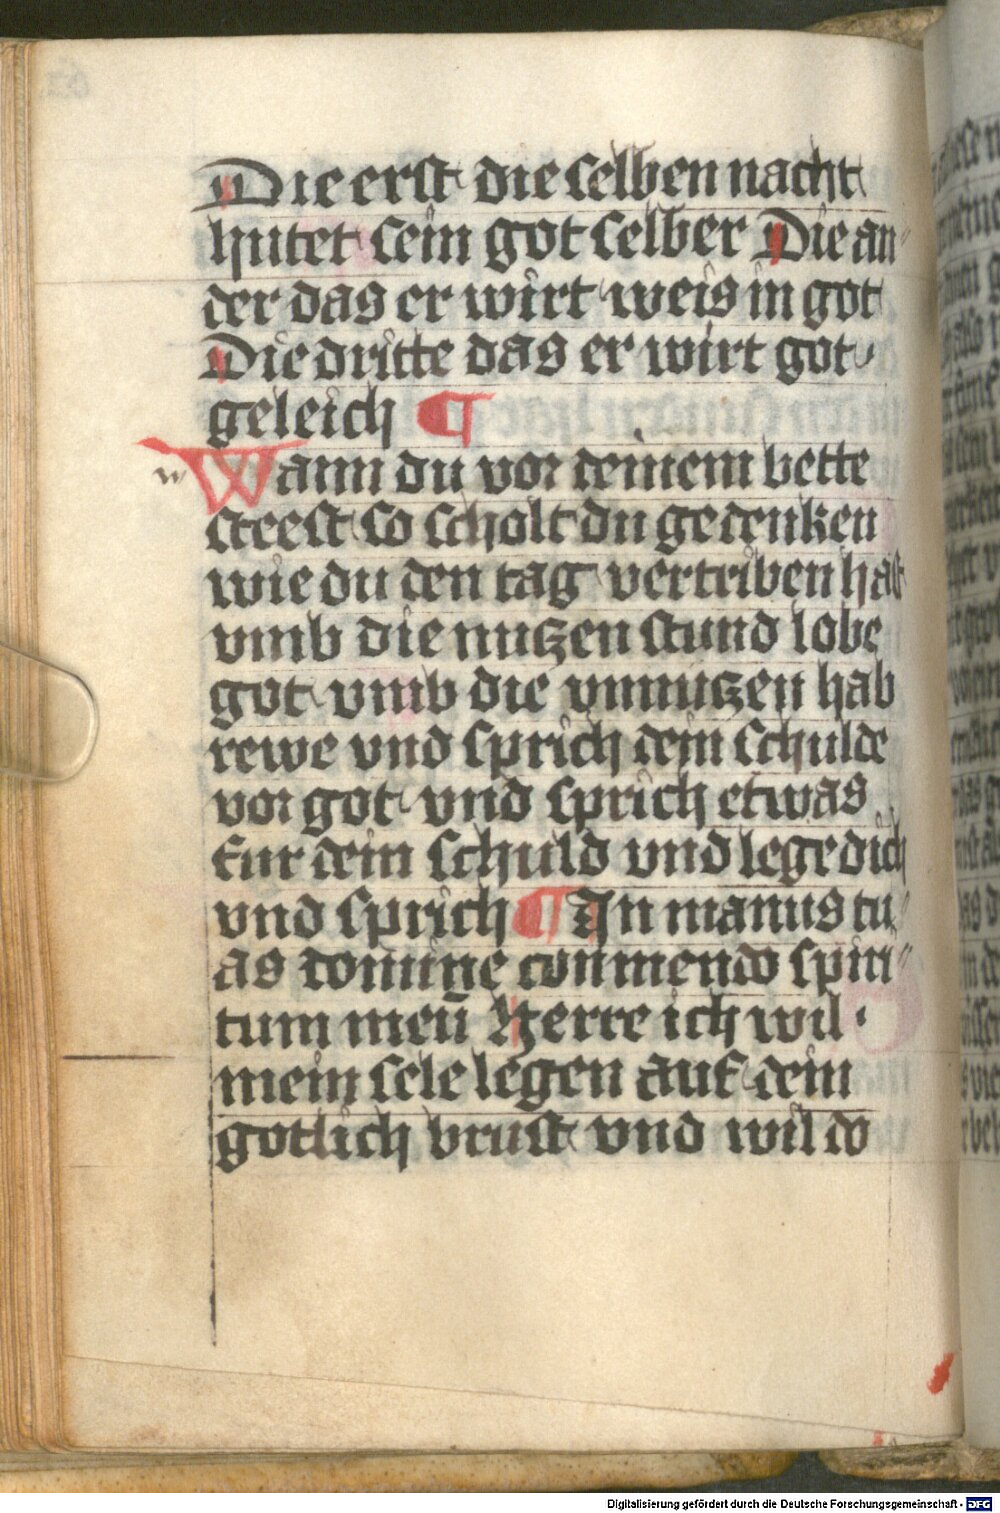 Die erst die selben nacht
hutet sein got selber Die an
der das er wirt weis in got
Die dritte das er wirt got
geleich ¶
Wann du vor deinem bette
steest so scholt du gedenken
wie du den tag vertriben hast
vmb die nutzen stund lobe
got vmb die vnnutzen hab
rewe vnd sprich dein schulde
vor got vnd sprich etwas
fur dein schuld vnd lege dich
vnd sprich ¶ In manus tu
as domine conmendo spiri
tum meū Herre ich wil
mein sele legen auf dein
gotlich brust vnd wil do
Digitalisierung gefördert durch die Deutsche Forschungsgemeinschaft - DFG